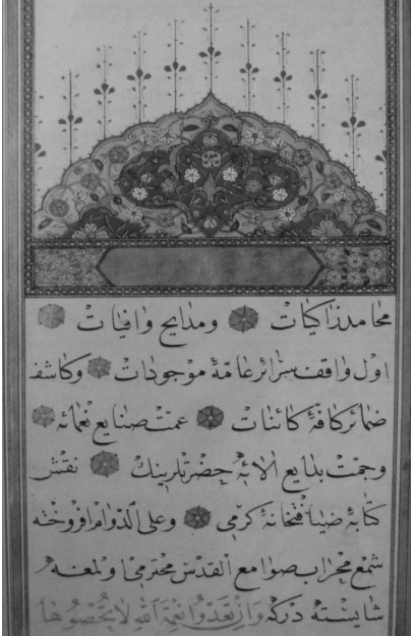 محامد زاکیات و مدایح وافیات
اول واقف سرائر عامۀ موجودات و کاشف
ضمائر کافۀ کائنات عمت صنایع نعمائه
و جمت بدایع آلائه حضرتلرینك نقش
کتابۀ ضیافتخانۀ کرمی و علی الدوام افروخته
شمع محراب صوامع القدس محترمی و لمعه
شایسته در که و ان تعدوا نعمة الله لا تحصوها